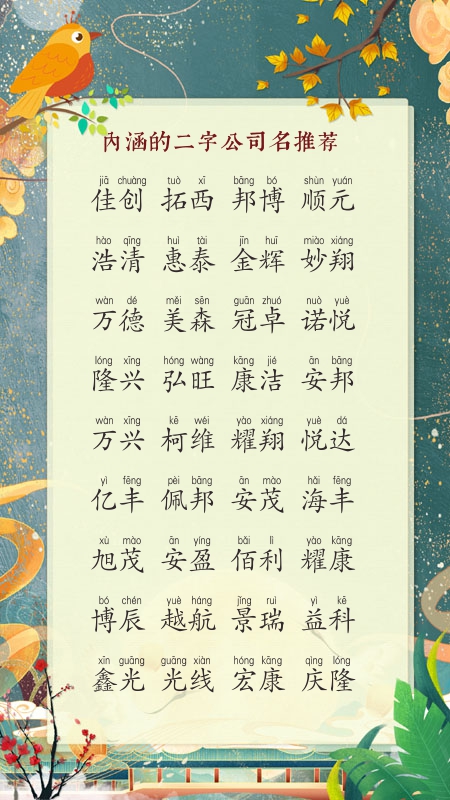 内涵的二字公司名推荐
jiā chuàng tuò xī bāng bó shùn yuán
佳创 拓西 邦博 顺元
hào qīng huì tài jīn huī miào xiáng
浩清 惠泰 金辉 妙翔
wàn dé měi sēn guān zhuó nuò yuè
万德 美森 冠卓 诺悦
lóng xīng hóng wàng kāng jié ān bāng
隆兴 弘旺 康洁 安邦
wàn xīng kē wéi yào xiáng yuè dá
万兴 柯维 耀翔 悦达
yì fēng pèi bāng ān mào hǎi fēng
亿丰 佩邦 安茂 海丰
xù mào ān yíng bǎi lì yào kāng
旭茂 安盈 佰利 耀康
bó chén yuè háng jǐng ruì yì kē
博辰 越航 景瑞 益科
xīn guāng guāng xiàn hóng kāng qìng lóng
鑫光 光线 宏康 庆隆